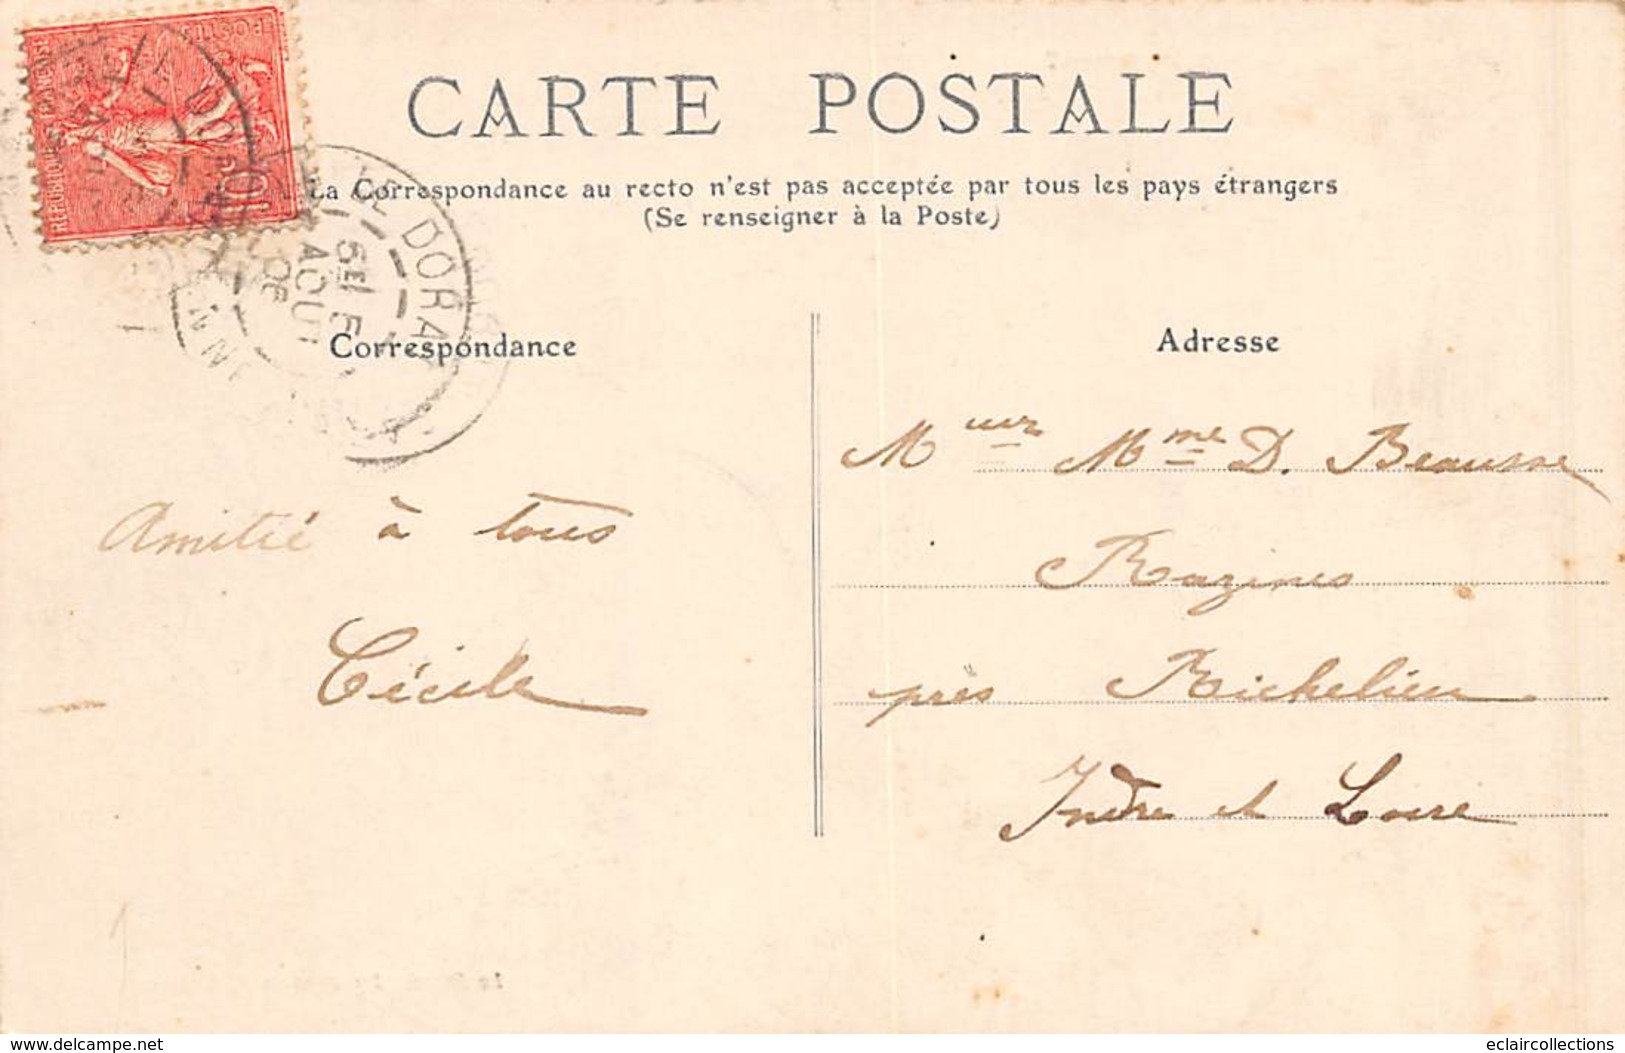 REPUBLIQUE FRANÇAISE
POSTES
CARTE POSTALE
La Correspondance au recto n'est pas acceptée par tous les pays étrangers
(Se renseigner à la Poste)
LE DORAT
AOUT
Correspondance
Adresse
Amitié à tous
Cécile
Mr Mme D. Beausse
Razines
près Richelieu
Indre et Loire
www.delcampe.net
eclaircollections